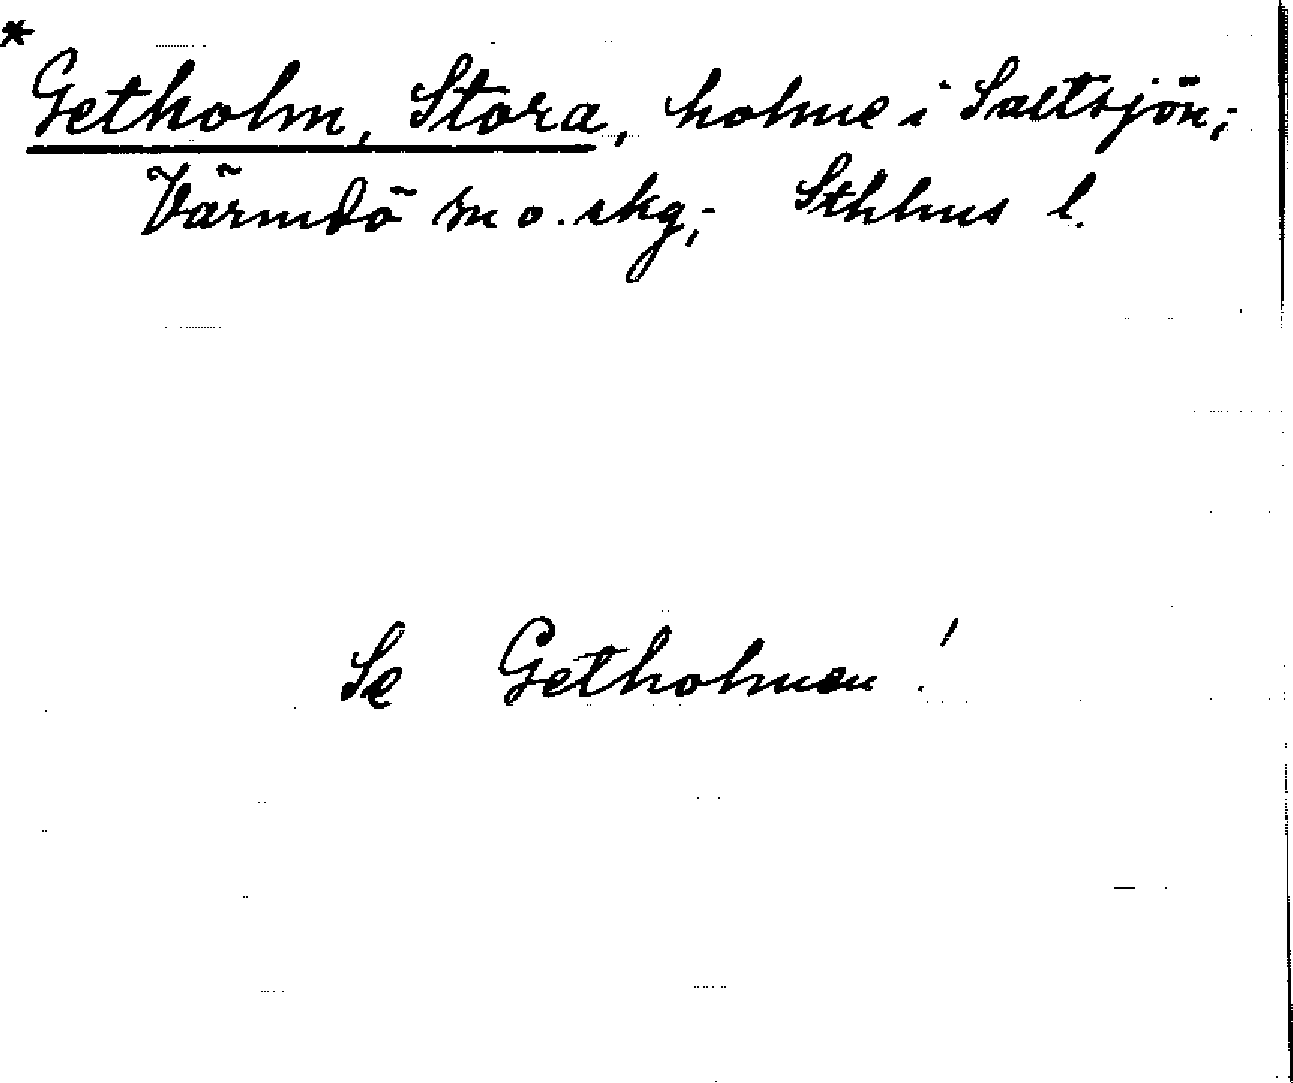 *
Getholm, Stora, holme i Saltsjön;
Värmdö sn o. skg; Sthlms l.
Se Getholmen!